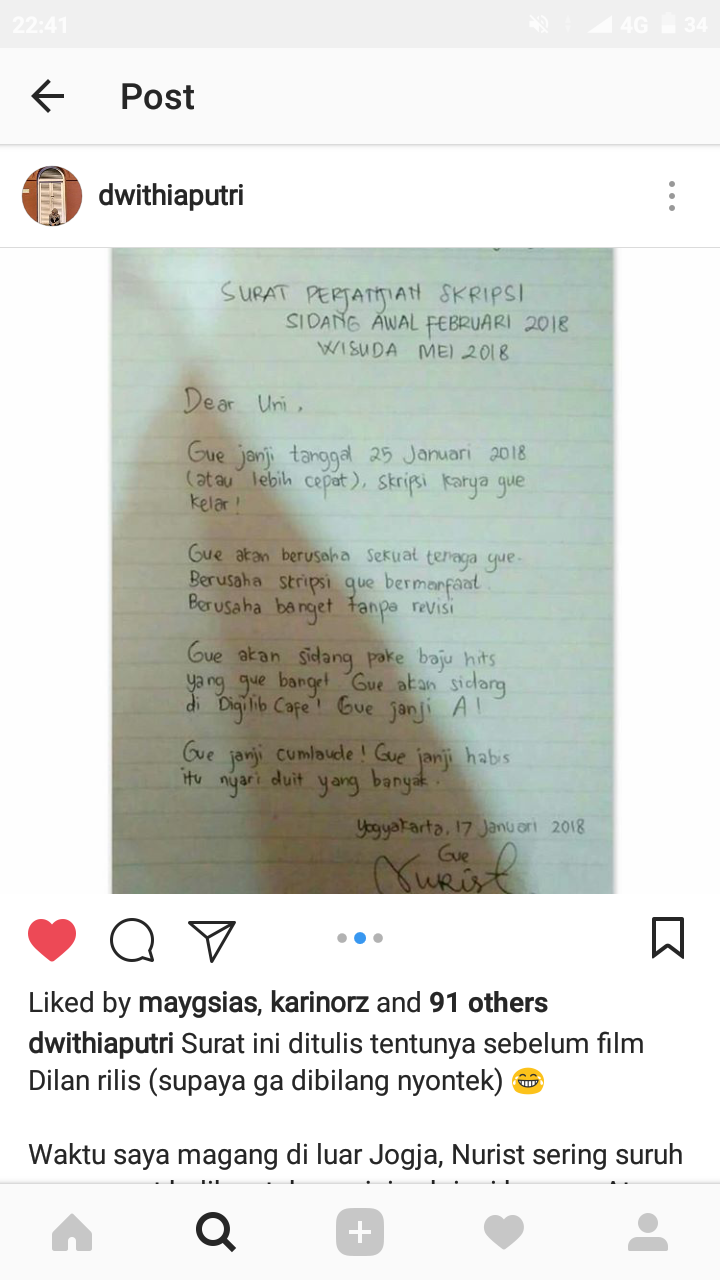 22:41
4G
34
Post
dwithiaputri
SURAT PERJANJIAN SKRIPSI
SIDANG AWAL FEBRUARI 2018
WISUDA MEI 2018
Dear Uni,
Gue janji tanggal 25 Januari 2018
(atau lebih cepat), skripsi karya gue
kelar!
Gue akan berusaha sekuat tenaga gue.
Berusaha skripsi gue bermanfaat.
Berusaha banget tanpa revisi
Gue akan sidang pake baju hits
yang gue banget. Gue akan sidang
di Digilib Cafe! Gue janji A!
Gue janji cumlaude! Gue janji habis
itu nyari duit yang banyak.
Yogyakarta, 17 Januari 2018
Gue
Nurist
Liked by maygsias, karinorz and 91 others
dwithiaputri Surat ini ditulis tentunya sebelum film
Dilan rilis (supaya ga dibilang nyontek) 😂
Waktu saya magang di luar Jogja, Nurist sering suruh